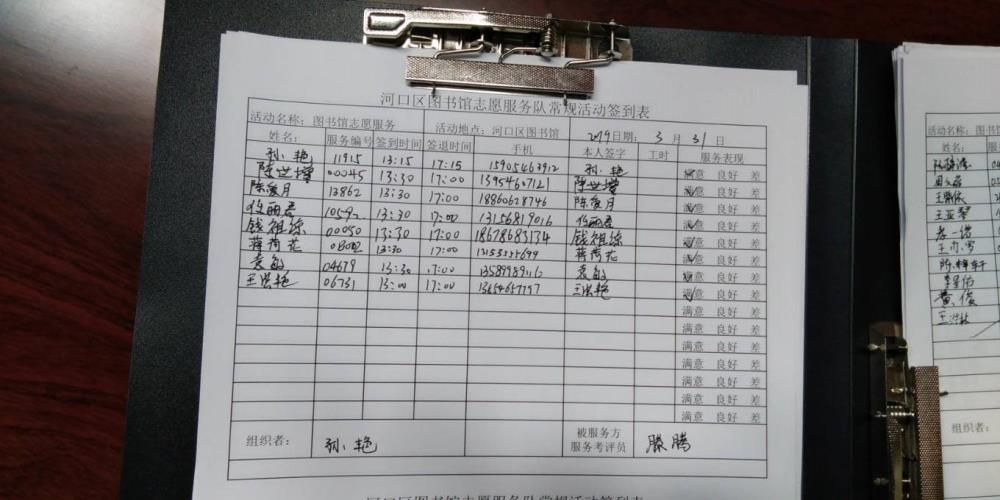 河口区图书馆志愿服务队常规活动签到表
活动名称：图书馆志愿服务 活动地点：河口区图书馆 2019日期：3月31日
姓名： 服务编号 签到时间 签退时间 手机 本人签字 工时 服务表现
孙艳 11915 13:15 17:15 15905463912 孙艳 满意 良好 差
陈世增 00045 13:30 17:00 13954607121 陈世增 满意 良好 差
陈爱月 12862 13:30 17:00 18860628746 陈爱月 满意 良好 差
丽君 10592 13:30 17:00 13156819016 丽君 满意 良好 差
钱祖练 00050 13:30 17:00 18678683134 钱祖练 满意 良好 差
蒋荷花 13:30 17:00 蒋荷花 满意 良好 差
04679 13:30 17:00 满意 良好 差
王洪艳 06731 13:00 17:00 13654657797 王洪艳 满意 良好 差
满意 良好 差
满意 良好 差
满意 良好 差
满意 良好 差
满意 良好 差
满意 良好 差
满意 良好 差
组织者： 孙艳 被服务方
服务考评员 滕腾
河口区图书馆志愿服务队常规活动签到表
活动名称：图书
姓名： 服
王亚琴
李景佑
黄俊
组织者：